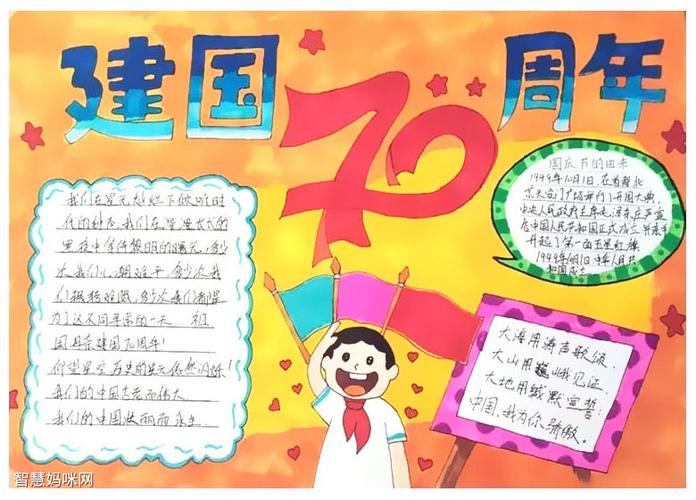 建国70周年
我们在星光灿烂下倾听时
代的钟声,我们在漫漫长长的
黑夜中等待黎明的曙光,多少
次我们心潮难平,多少次我
们
难眠,多少次我们都是
为了这不同寻常的一天。祖
国母亲建国70周年!
仰望星空,历史的星光依然闪烁!
我们的中国古老而伟大
我们的中国壮丽而永生
国庆节的由来
1949年10月1日,在首都北
京天安门广场举行了开国大典
中央人民政府主席毛泽东庄严宣
告中国人民共和国正式成立并亲手
升起了第一面五星红旗
1949年10月1日中华人民共
和国成立
大海用涛声歌颂,
大山用巍峨见证,
大地用缄默宣誓:
中国,我为你骄傲。
智慧妈咪网